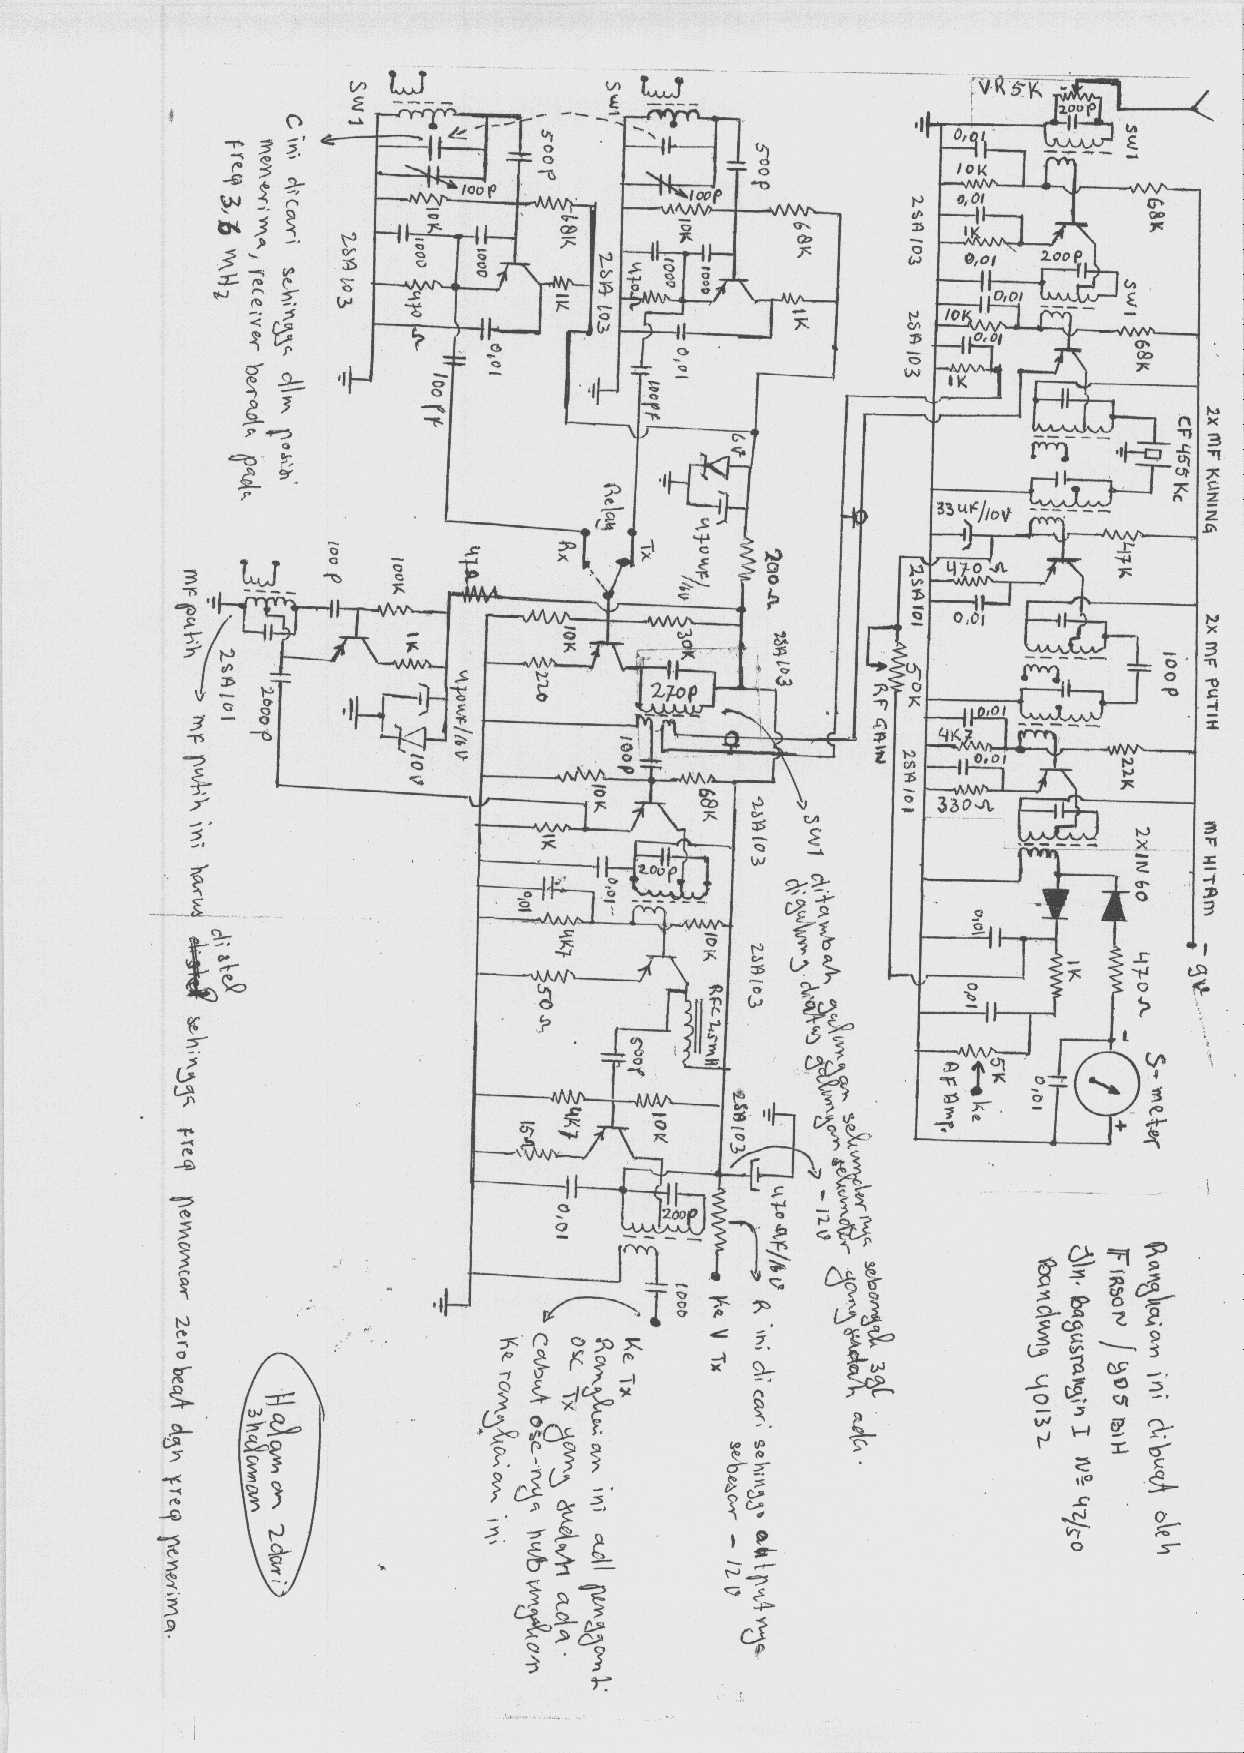 VR 5K
200p
SW1
0,01
10K
68K
0,01
1K
2SA103
0,01
200p
SW1
0,01
10K
68K
0,01
1K
2SA103
2x MF KUNING
CF 455 Kc
33uF/10V
47K
470Ω
0,01
2SA101
50K
RF GAIN
2x MF PUTIH
100p
0,01
4K7
22K
0,01
330Ω
2SA101
MF HITAM
- 9V
2XIN60
0,01
1K
470Ω
0,01
5K
ke
AF Amp.
S-meter
-
+
0,01
SW1
500p
100p
10K
68K
1000
1000
470Ω
1K
0,01
2SA103
100pF
SW1
500p
100p
10K
68K
1000
1000
470Ω
1K
0,01
2SA103
100pF
C ini dicari sehingga dlm posisi
menerima, receiver berada pada
freq 3,6 MHz
6V
470uF/16V
200Ω
Relay
Rx
Tx
47Ω
10K
30K
220
270p
2SA103
100p
100K
1K
2SA101
2000p
470uF/16V
10V
MF putih
MF putih ini harus distel sehingga freq pemancar zerobeat dgn freq penerima.
100p
10K
68K
1K
2SA103
0,01
200p
0,01
4K7
10K
50Ω
2SA103
RFC 2,5mH
500p
4K7
10K
15Ω
2SA103
0,01
200p
470uF/16V
-12V
1000
SW1 ditambah gulungan sekundernya sebanyak 3gl
digulung diatas gulungan sekunder yang sudah ada.
Ke V Tx
R ini dicari sehingga outputnya
sebesar - 12V
Ke Tx
Rangkaian ini adl pengganti
osc Tx yang sudah ada.
Cabut osc-nya hubungkan
Ke rangkaian ini
Rangkaian ini dibuat oleh
FIRSON / YD5 BIH
Jln. Bagusrangin I No 42/50
Bandung 40132
Halaman 2 dari
3 halaman